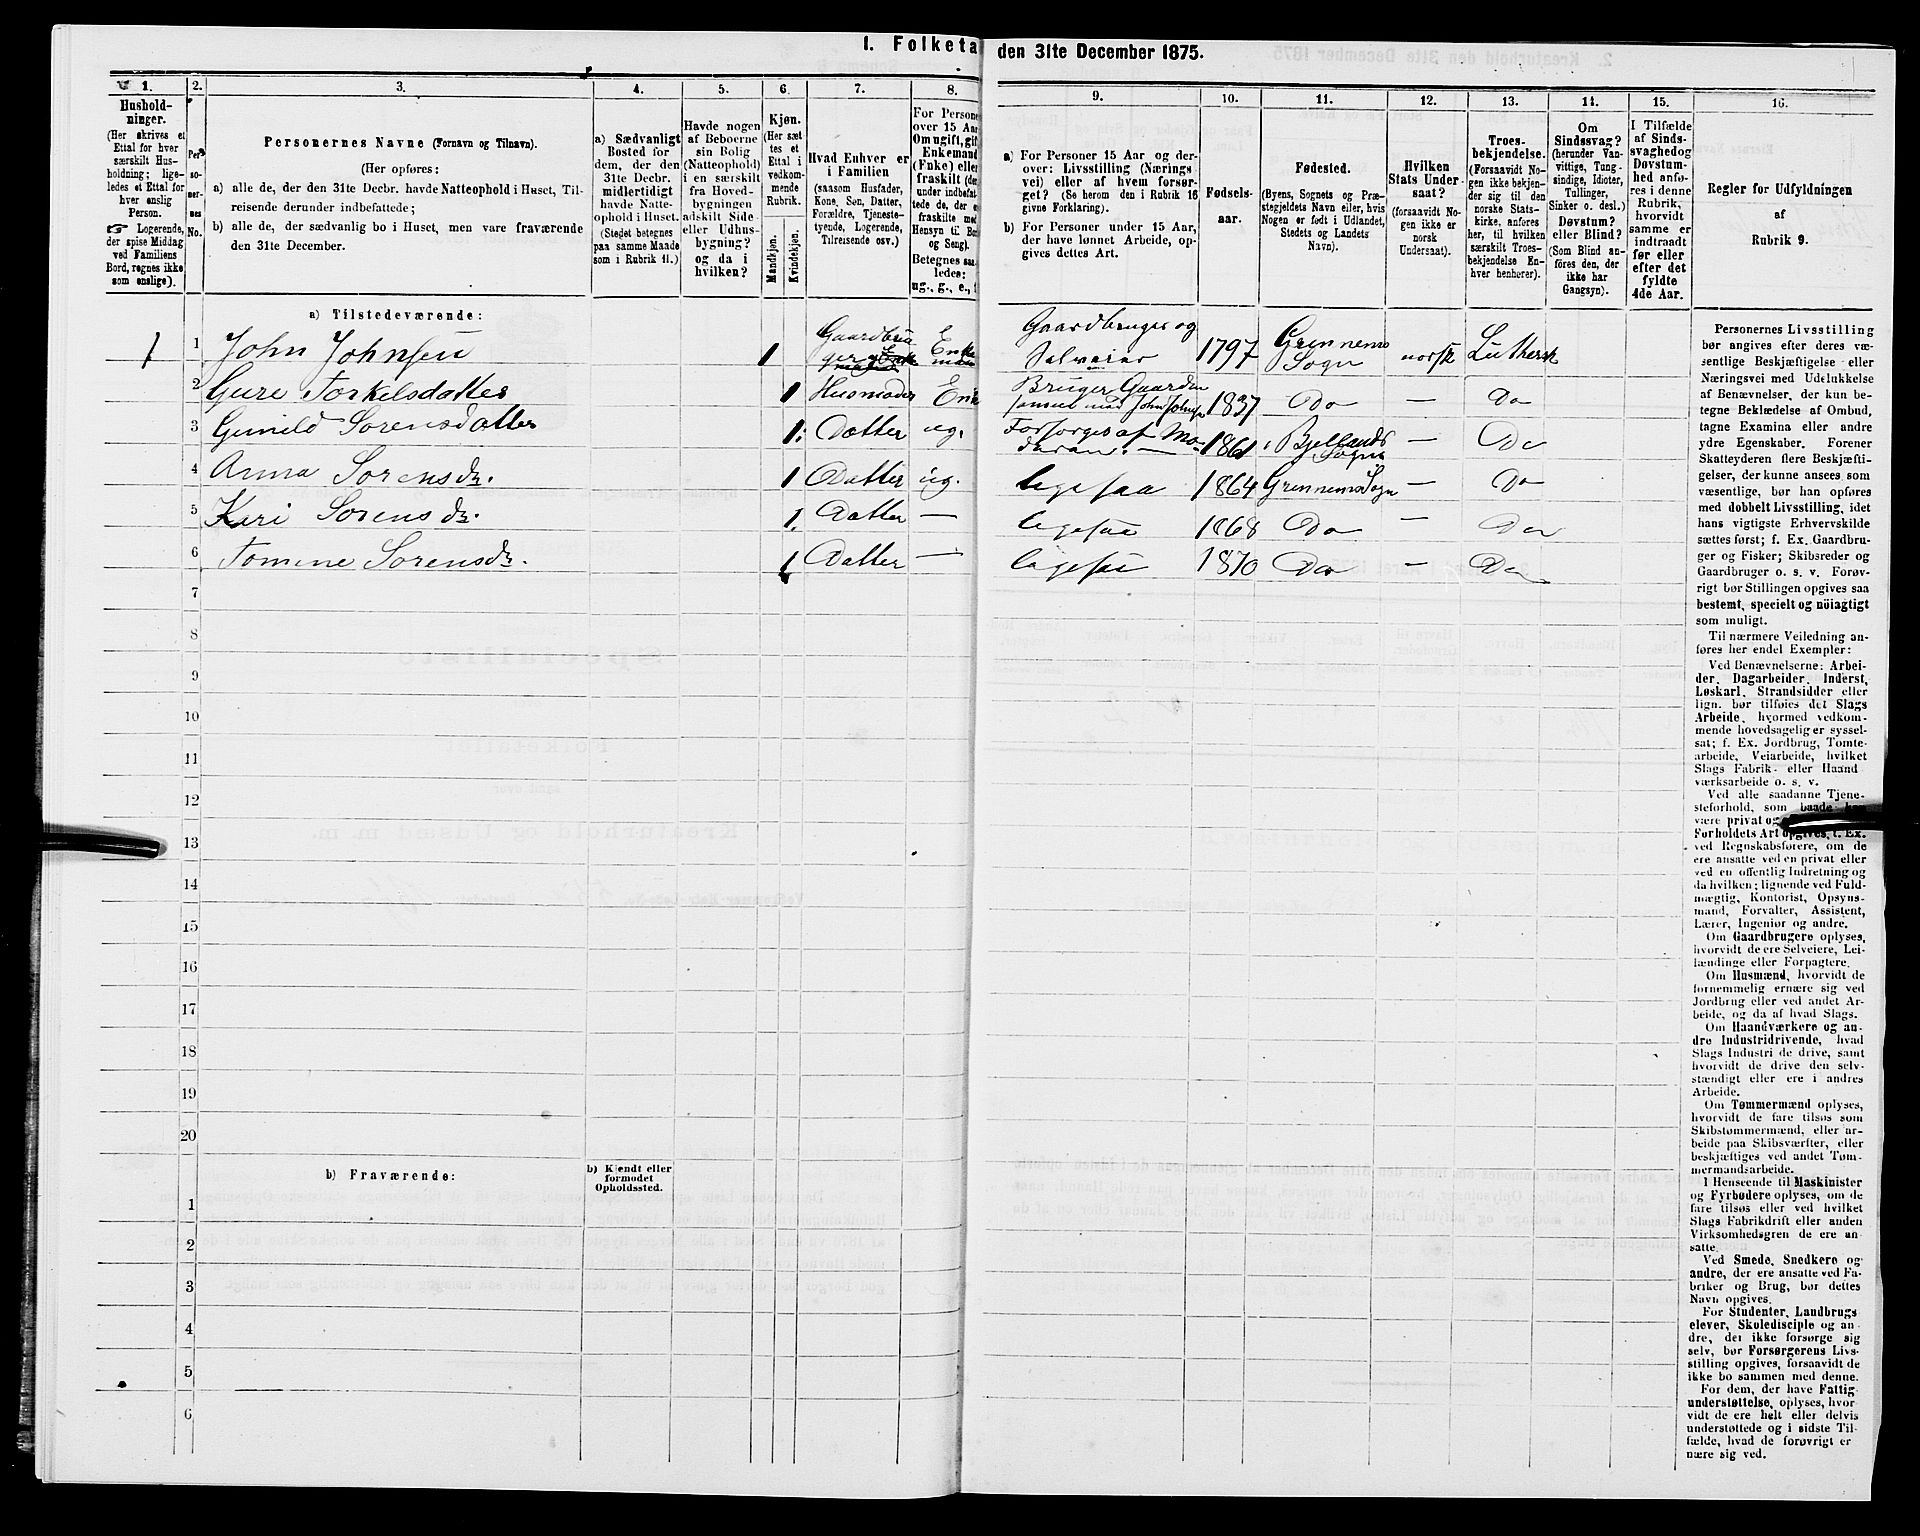 1. Folketa
den 31te December 1875.
1.
Hushold-
ninger.
(Her skrives et
Ettal for hver
særskilt Hus-
holdning; lige-
ledes et Ettal for
hver enslig
Person.
☞ Logerende,
der spise Middag
ved Familiens
Bord, regnes ikke
som enslige).
2.
Per-
so-
ner-
nes
No.
3.
Personernes Navne (Fornavn og Tilnavn).
(Her opføres:
a) alle de, der den 31te Decbr. havde Natteophold i Huset, Til-
reisende derunder indbefattede;
b) alle de, der sædvanlig bo i Huset, men vare fraværende
den 31te December.
4.
a) Sædvanligt
Bosted for
dem, der den
31te Decbr.
midlertidigt
havde Natte-
ophold i Huset.
(Stedet betegnes
paa samme Maade
som i Rubrik 11.)
5.
Havde nogen
af Beboerne
sin Bolig
(Natteophold)
i en særskilt
fra Hoved-
bygningen
adskilt Side-
eller Udhus-
bygning?
og da i
hvilken?
6.
Kjøn.
(Her sæt-
tes et
Ettal i
vedkom-
mende
Rubrik.
Mandkjøn.
Kvindekjøn.
7.
Hvad Enhver er
i Familien
(saasom Husfader,
Kone, Søn, Datter,
Forældre, Tjeneste-
tyende, Logerende,
Tilreisende osv.)
8.
For Persone
over 15 Aar
Om ugift, gif
Enkemand
(Enke) eller
fraskilt (de
under indbefat-
tede de, der e
fraskilte med
Hensyn til Bo
og Seng).
Betegnes saa-
ledes:
ug., g., e.,
9.
a) For Personer 15 Aar og der-
over: Livsstilling (Nærings-
vei) eller af hvem forsør-
get? (Se herom den i Rubrik 16
givne Forklaring).
b) For Personer under 15 Aar,
der have lønnet Arbeide, op-
gives dettes Art.
10.
Fødsels-
aar.
11.
Fødested.
(Byens, Sognets og Præ-
stegjeldets Navn eller, hvis
Nogen er født i Udlandet,
Stedets og Landets
Navn).
12.
Hvilken
Stats Under-
saat?
(forsaavidt No-
gen ikke er
norsk
Undersaat).
13.
Troes-
bekjendelse.
(Forsaavidt No-
gen ikke bekjen-
der sig til den
norske Stats-
kirke, anføres
her, til hvilken
særskilt Troes-
bekjendelse En-
hver henhører).
14.
Om
Sindssvag?
(herunder Van-
vittige, Tung-
sindige, Idioter,
Tullinger,
Sinker o. desl.)
Døvstum?
eller Blind?
(Som Blind an-
føres den, der
ikke har
Gangsyn).
15.
I Tilfælde
af Sinds-
svaghed og
Døvstum-
hed anfø-
res i denne
Rubrik,
hvorvidt
samme er
indtraadt
før eller
efter det
fyldte
4de Aar.
16.
Regler for Udfyldningen
af
Rubrik 9.
a) Tilstedeværende:
1 1 John Johnsen 1 Gaardbru Enke
Gaardbruger og
Selveier 1797 Grennems
Sogn norsk Luthersk
2 Gure Torkelsdatter 1 Husmoder Enk
Bruger Gaarden
sammen med John Johnsen 1837 Do — Do
3 Gunild Sorensdatter 1. Datter ug.
Forsørges af Mo-
deren. — 1861 Bjellands
Sogn — Do
4 Anna Sorensdr. 1 Datter ug. ligesaa 1864 Grennems Sogn — Do
5 Kari Sorensdr. 1. Datter — ligesaa 1868 Do — Do
6 Tomine Sorensdr. 1 Datter — ligesaa 1870 Do — Do
7
8
9
10
11
12
13
14
15
16
17
18
19
20
b) Fraværende:
b) Kjendt eller
formodet
Opholdssted.
1
2
3
4
5
6
Personernes Livsstilling
bør angives efter deres væ-
sentlige Beskjæftigelse eller
Næringsvei med Udelukkelse
af Benævnelser, der kun be-
tegne Beklædelse af Ombud,
tagne Examina eller andre
ydre Egenskaber. Forener
Skatteyderen flere Beskjæfti-
gelser, der kunne ansees som
væsentlige, bør han opføres
med dobbelt Livsstilling, idet
hans vigtigste Erhvervskilde
sættes først; f. Ex. Gaardbru-
ger og Fisker; Skibsreder og
Gaardbruger o. s. v. Forøv-
rigt bør Stillingen opgives saa
bestemt, specielt og nöiagtigt
som muligt.
Til nærmere Veiledning an-
føres her endel Exempler:
Ved Benævnelserne: Arbei-
der, Dagarbeider, Inderst,
Løskarl, Strandsidder eller
lign. bør tilføies det Slags
Arbeide, hvormed vedkom-
mende hovedsagelig er syssel-
sat; f. Ex. Jordbrug, Tomte-
arbeide, Veiarbeide, hvilket
Slags Fabrik- eller Haand-
værksarbeide o. s. v.
Ved alle saadanne Tjene-
steforhold, som baade kan
være privat og
Forholdets Art opgives, f. Ex.
ved Regnskabsførere, om de
ere ansatte ved en privat eller
ved en offentlig Indretning og
da hvilken; lignende ved Fuld-
mægtig, Kontorist, Opsyns-
mand, Forvalter, Assistent,
Lærer, Ingeniør og andre.
Om Gaardbrugere oplyses,
hvorvidt de ere Selveiere, Lei-
lændinge eller Forpagtere.
Om Husmænd, hvorvidt de
fornemmelig ernære sig ved
Jordbrug eller ved andet Ar-
beide, og da af hvad Slags.
Om Haandværkere og an-
dre Industridrivende, hvad
Slags Industri de drive, samt
hvorvidt de drive den selv-
stændigt eller ere i andres
Arbeide.
Om Tømmermænd oplyses,
hvorvidt de fare tilsøs som
Skibstømmermænd, eller ar-
beide paa Skibsværfter, eller
beskjæftiges ved andet Tøm-
mermandsarbeide.
I Henseende til Maskinister
og Fyrbødere oplyses, om de
fare tilsøs eller ved hvilket
Slags Fabrikdrift eller anden
Virksomhedsgren de ere an-
satte.
Ved Smede, Snedkere og
andre, der ere ansatte ved Fa-
briker og Brug, bør dettes
Navn opgives.
For Studenter, Landbrugs-
elever, Skoledisciple og an-
dre, der ikke forsørge sig
selv, bør Forsørgerens Livs-
stilling opgives, forsaavidt de
ikke bo sammen med denne.
For dem, der have Fattig-
understøttelse, oplyses, hvor-
vidt de ere helt eller delvis
understøttede og i sidste Til-
fælde, hvad de forøvrigt er-
nære sig ved.